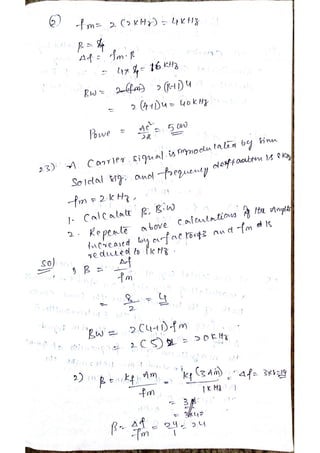 2) fm = 2 (2 KHz) = 4 KHz
β = 4
Δf = fm · β
= 4 × 4 = 16 KHz
BW = 2 (β+1) 4
= 2 (4+1) 4 = 40 KHz
Powe = Ac² / 2R = 5 W
23) A Carrier signal is modulated by sinu
Soidal sig. and frequency
fm = 2 KHz.
1. Calculate β, B.W
2. Repeate above calculations if the
increased by a factor 3 and fm is
reduced to 1 KHz.
Sol 1) β = Δf / fm
= 8 / 2 = 4
BW = 2 (4+1) fm
= 2 (5) 2 = 20 KHz
2) β = kf Am / fm = kf (3 Am) / 1 KHz
β = Δf / fm = 24 / 1 = 24